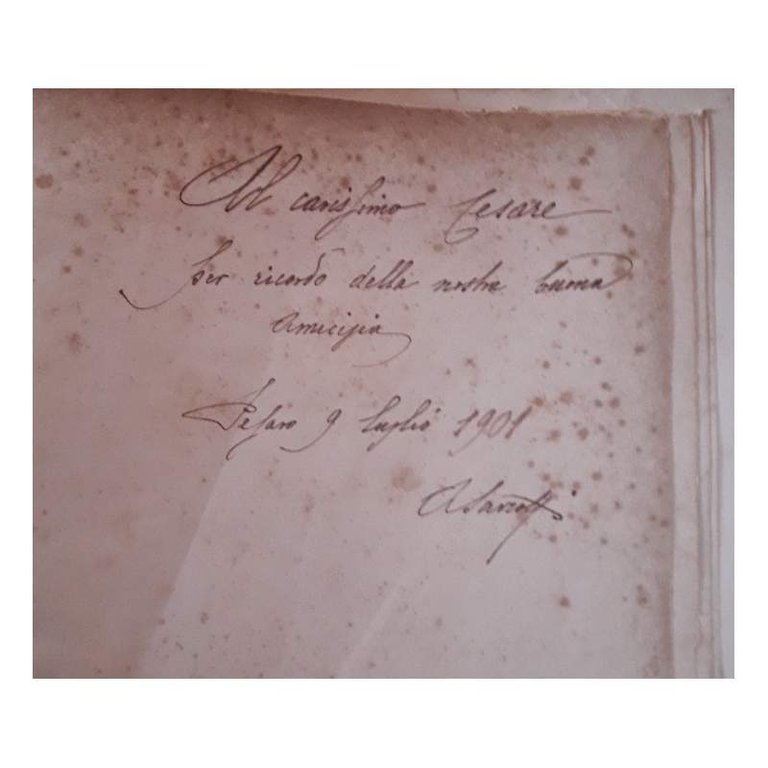 Al carissimo Cesare
per ricordo della nostra buona
amicizia
Pesaro 9 luglio 1901